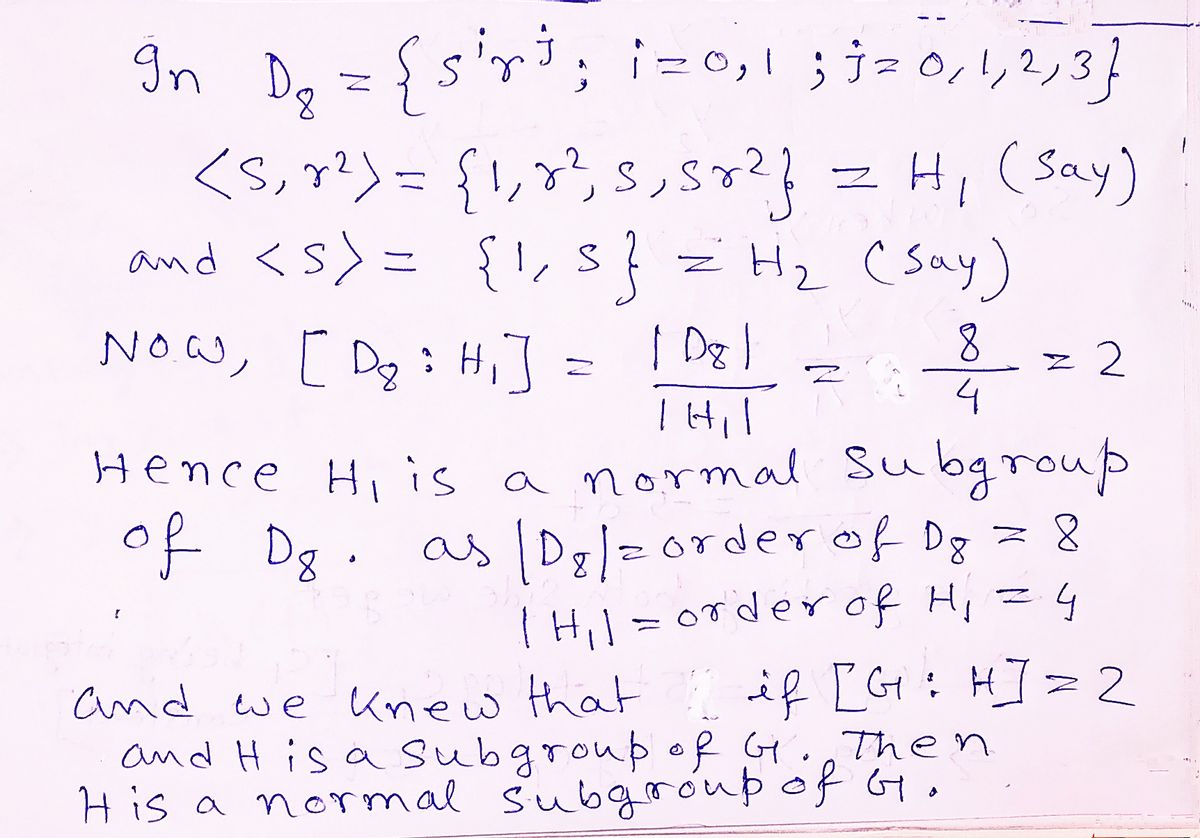 In D₈ = {sⁱrʲ; i=0,1 ; j=0,1,2,3}
<s, r²> = {1, r², s, sr²} = H₁ (say)
and <s> = {1, s} = H₂ (say)
Now, [D₈ : H₁] = |D₈| / |H₁| = 8/4 = 2
Hence H₁ is a normal subgroup
of D₈. as |D₈| = order of D₈ = 8
|H₁| = order of H₁ = 4
and we knew that if [G : H] = 2
and H is a subgroup of G. Then
H is a normal subgroup of G.